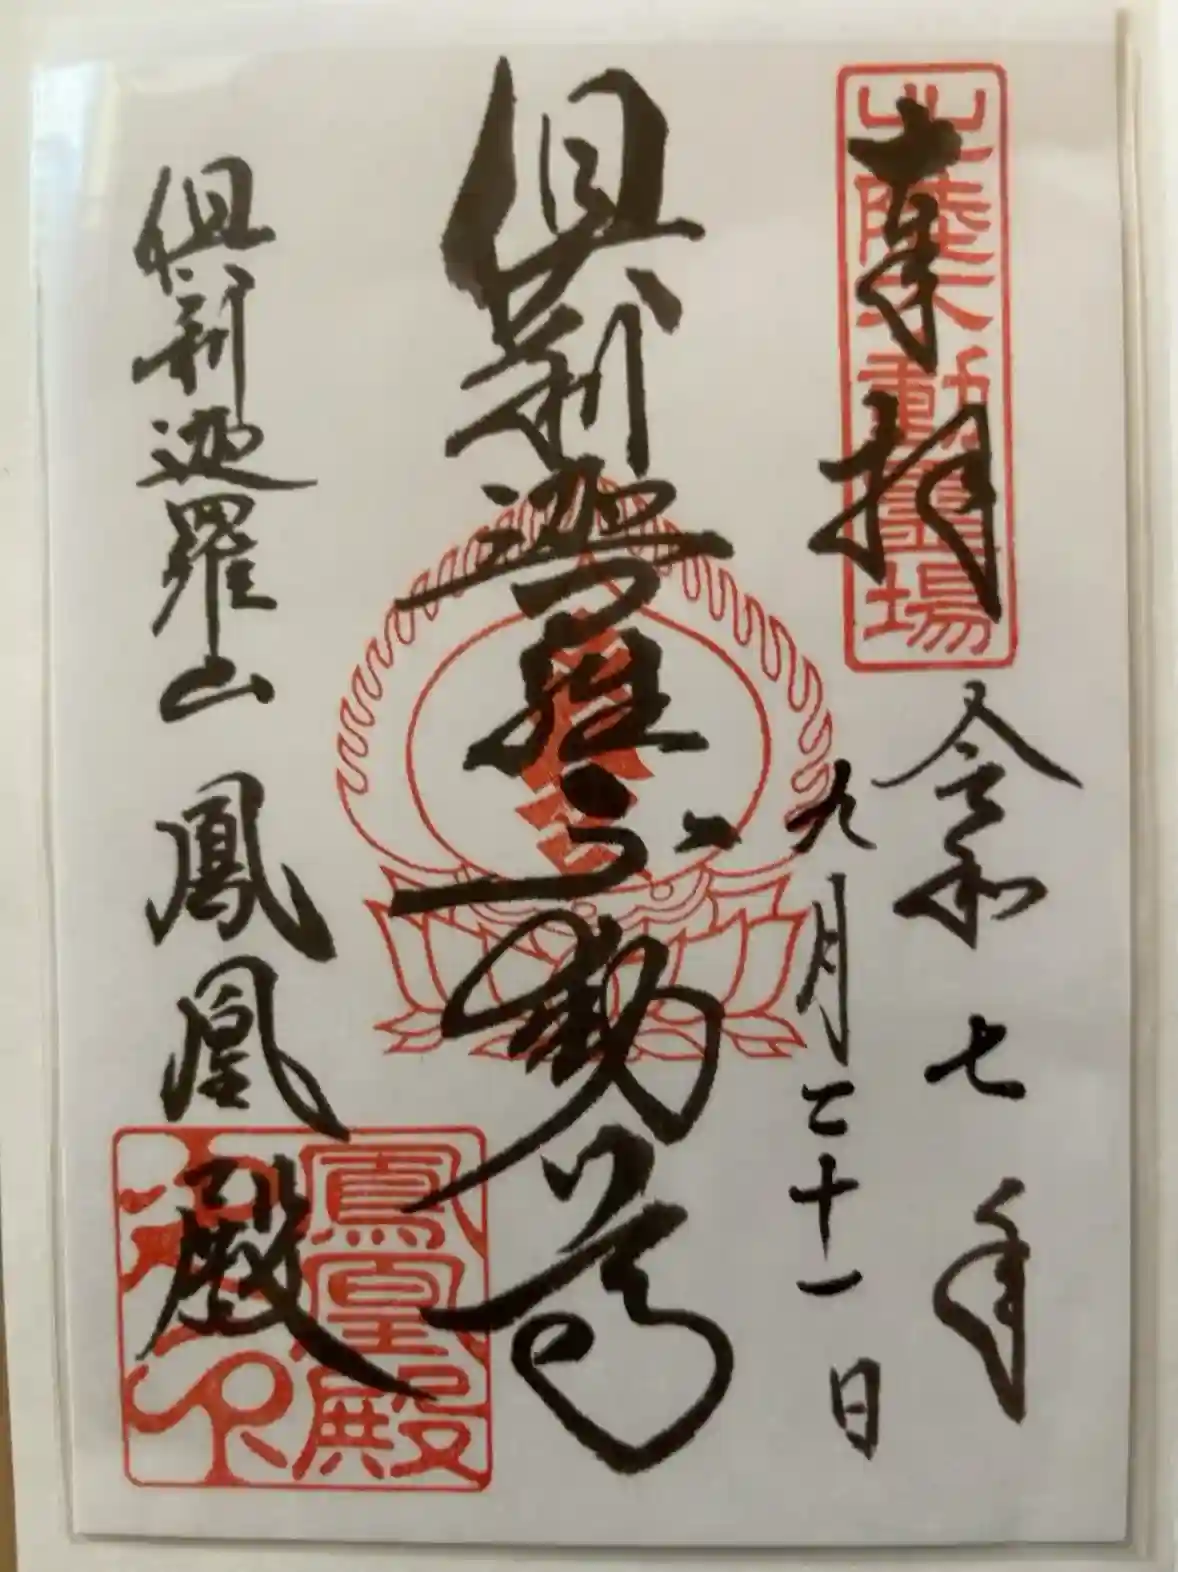 北陸不動霊場
奉拝
令和七年
九月二十一日
倶利迦羅不動尊
倶利迦羅山 鳳凰殿
鳳凰殿